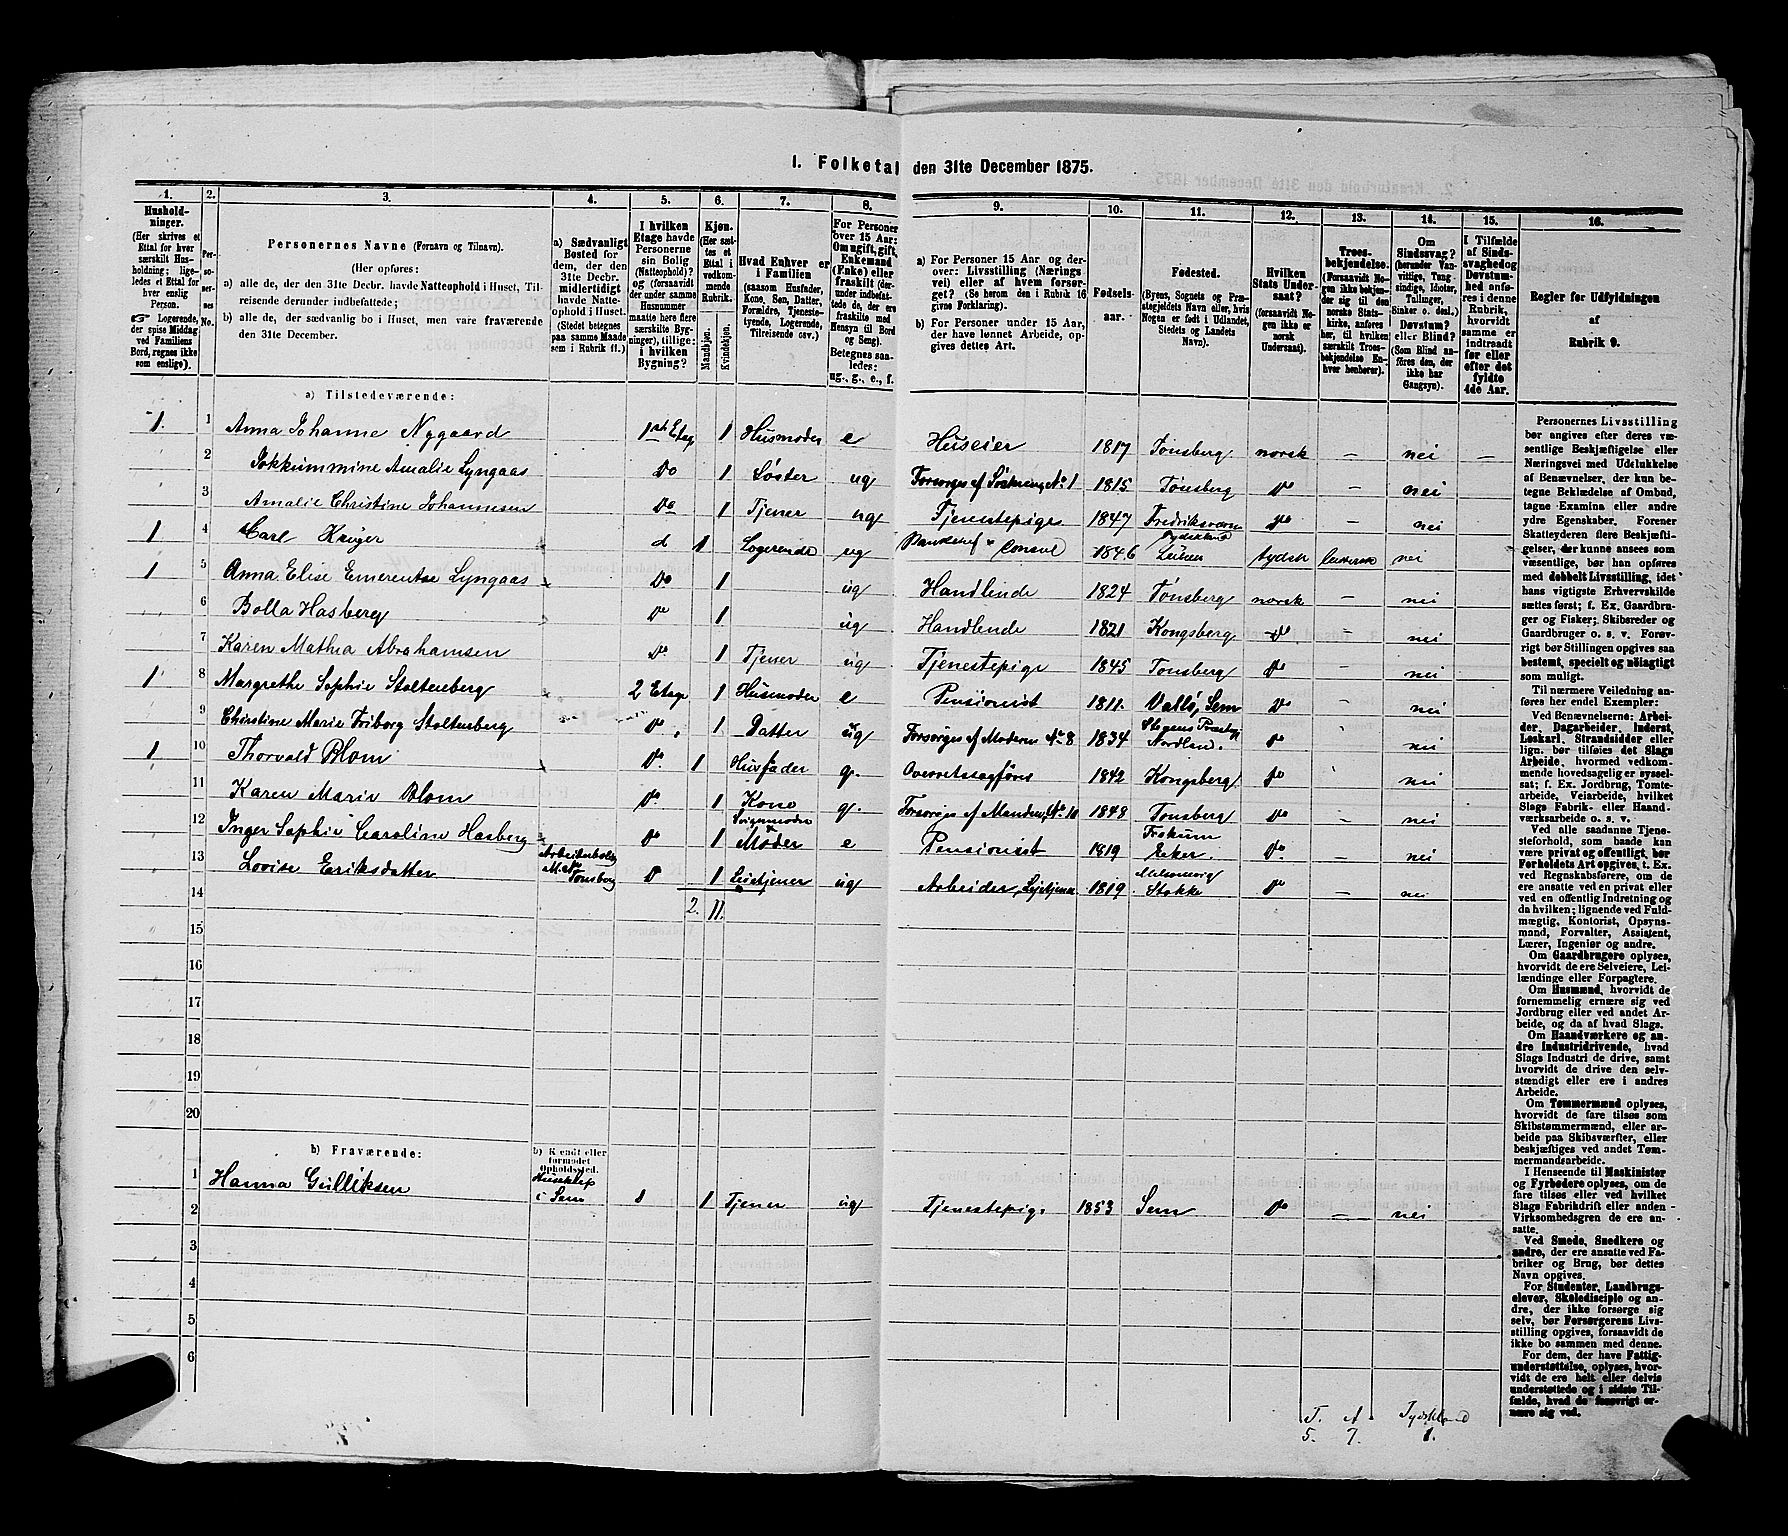 1. Folketal den 31te December 1875.
1. 2. 3. 4. 5. 6. 7. 8. 9. 10. 11. 12. 13. 14. 15. 16.
Hushold-
ninger.
(Her skrives et
Ettal for hver
særskilt Hus-
holdning; lige-
ledes et Ettal for
hver enslig
Person.
☞ Logerende,
der spise Middag
ved Familiens
Bord, regnes ikke
som enslige).
Per-
so-
ner-
nes
No.
Personernes Navne (Fornavn og Tilnavn).
(Her opføres:
a) alle de, der den 31te Decbr. havde Natteophold i Huset, Til-
reisende derunder indbefattede;
b) alle de, der sædvanlig bo i Huset, men vare fraværende
den 31te December.
a) Sædvanligt
Bosted for
dem, der den
31te Decbr.
midlertidigt
havde Natte-
ophold i Huset.
(Stedet betegnes
paa samme Maade
som i Rubrik 11.)
I hvilken
Etage havde
Personerne
sin Bolig
(Natteophold)?
og (forsaavidt
der under samme
Husnummer
maatte høre flere
særskilte Byg-
ninger), tillige:
i hvilken
Bygning?
Kjøn.
(Her sæt-
tes et
Ettal i
vedkom-
mende
Rubrik.
Mandkjøn.
Kvindekjøn.
Hvad Enhver er
i Familien
(saasom Husfader,
Kone, Søn, Datter,
Forældre, Tjeneste-
tyende, Logerende,
Tilreisende osv.)
For Personer
over 15 Aar:
Om ugift, gift,
Enkemand
(Enke) eller
fraskilt (der-
under indbefat-
tede de, der ere
fraskilte med
Hensyn til Bord
og Seng).
Betegnes saa-
ledes:
ug., g., e., f.
a) For Personer 15 Aar og der-
over: Livsstilling (Nærings-
vei) eller af hvem forsør-
get? (Se herom den i Rubrik 16
givne Forklaring).
b) For Personer under 15 Aar,
der have lønnet Arbeide, op-
gives dettes Art.
Fødsels-
aar.
Fødested.
(Byens, Sognets og Præ-
stegjeldets Navn eller, hvis
Nogen er født i Udlandet,
Stedets og Landets
Navn).
Hvilken
Stats Under-
saat?
(forsaavidt No-
gen ikke er
norsk
Undersaat).
Troes-
bekjendelse.
(Forsaavidt No-
gen ikke bekjen-
der sig til den
norske Stats-
kirke, anføres
her, til hvilken
særskilt Troes-
bekjendelse En-
hver henhører).
Om
Sindssvag?
(herunder Van-
vittige, Tung-
sindige, Idioter,
Tullinger,
Sinker o. desl.)
Døvstum?
eller Blind?
(Som Blind an-
føres den, der
ikke har
Gangsyn).
I Tilfælde
af Sinds-
svaghed og
Døvstum-
hed anfø-
res i denne
Rubrik,
hvorvidt
samme er
indtraadt
før eller
efter det
fyldte
4de Aar.
Regler for Udfyldningen
af
Rubrik 9.
a) Tilstedeværende:
1. 1 Anna Johanne Nygaard 1ste Etage 1 Husmoder e Huseier 1817 Tønsberg norsk — nei —
2 Jokkummine Amalie Lyngaas Do 1 Søster ug Forsørges af Søsteren No 1 1815 Tønsberg Do — nei
3 Amalie Christine Johannesen Do 1 Tjener ug Tjenestepige 1847 Fredriksværn Do — nei
1 4 Carl Krüger d 1 Logerende ug Consul 1846 Tydskland tydsk nei
1 5 Anna Elise Emerentse Lyngaas Do 1 ug Handlende 1824 Tønsberg norsk — nei
6 Bolla Hasberg Do 1 ug Handlende 1821 Kongsberg Do — nei
7 Karen Mathea Abrahamsen Do 1 Tjener ug Tjenestepige 1845 Tønsberg Do — nei
1 8 Margrethe Sophie Stoltenberg 2 Etage 1 Husmoder e Pensionist 1811 Vallø, Sem Do nei
9 Christine Marie Friborg Stoltenberg Do 1 Datter ug Forsørges af Moderen No 8 1834 Nordlen. Do nei
1 10 Thorvald Blom Do 1 Husfader g. Overretssagfører 1842 Kongsberg Do nei
11 Karen Marie Blom Do 1 Kone g. Forsørges af Manden, No 10 1848 Tønsberg Do — nei
12 Inger Sophie Caroline Hasberg Do 1 Svigermoder Moder e Pensionist 1819 Fiskum Eker. Do — nei
13 Lovise Eriksdatter Tønsberg D 1 Leietjener ug Arbeider, Leietjener 1819 Stokke Do — nei
14 2. 11.
15
16
17
18
19
20
b) Fraværende:
b) Kjendt eller
formodet
Opholdssted.
1 Hanna Gulliksen i Sem 1 1 Tjener ug Tjenestepige 1853 Sem Do — nei
2
3
4
5
6
Personernes Livsstilling
bør angives efter deres væ-
sentlige Beskjæftigelse eller
Næringsvei med Udelukkelse
af Benævnelser, der kun be-
tegne Beklædelse af Ombud,
tagne Examina eller andre
ydre Egenskaber. Forener
Skatteyderen flere Beskjæfti-
gelser, der kunne ansees som
væsentlige, bør han opføres
med dobbelt Livsstilling, idet
hans vigtigste Erhvervskilde
sættes først; f. Ex. Gaardbru-
ger og Fisker; Skibsreder og
Gaardbruger o. s. v. Forøv-
rigt bør Stillingen opgives saa
bestemt, specielt og nøiagtigt
som muligt.
Til nærmere Veiledning an-
føres her endel Exempler:
Ved Benævnelserne: Arbei-
der, Dagarbeider, Inderst,
Løskarl, Strandsidder eller
lign. bør tilføies det Slags
Arbeide, hvormed vedkom-
mende hovedsagelig er syssel-
sat; f. Ex. Jordbrug, Tomte-
arbeide, Veiarbeide, hvilket
Slags Fabrik- eller Haand-
værksarbeide o. s. v.
Ved alle saadanne Tjene-
steforhold, som baade kan
være privat og offentligt, bør
Forholdets Art opgives, t. Ex.
ved Regnskabsførere, om de
ere ansatte ved en privat eller
ved en offentlig Indretning og
da hvilken; lignende ved Fuld-
mægtig, Kontorist, Opsyns-
mand, Forvalter, Assistent,
Lærer, Ingeniør og andre.
Om Gaardbrugere oplyses,
hvorvidt de ere Selveiere, Lei-
lændinge eller Forpagtere.
Om Husmænd, hvorvidt de
fornemmelig ernære sig ved
Jordbrug eller ved andet Ar-
beide, og da af hvad Slags.
Om Haandværkere og an-
dre Industridrivende, hvad
Slags Industri de drive, samt
hvorvidt de drive den selv-
stændigt eller ere i andres
Arbeide.
Om Tømmermænd oplyses,
hvorvidt de fare tilsøs som
Skibstømmermænd, eller ar-
beide paa Skibsværfter, eller
beskjæftiges ved andet Tøm-
mermandsarbeide.
I Henseende til Maskinister
og Fyrbødere oplyses, om de
fare tilsøs eller ved hvilket
Slags Fabrikdrift eller anden
Virksomhedsgren de ere an-
satte.
Ved Smede, Snedkere og
andre, der ere ansatte ved Fa-
briker og Brug, bør dettes
Navn opgives.
For Studenter, Landbrugs-
elever, Skoledisciple og an-
dre, der ikke forsørge sig
selv, bør Forsørgerens Livs-
stilling opgives, forsaavidt de
ikke bo sammen med denne.
For dem, der have Fattig-
understøttelse, oplyses, hvor-
vidt de ere helt eller delvis
understøttede og i sidste Til-
fælde, hvad de forøvrigt er-
nære sig ved.
T. A. Tydskland
5. 7. 1.